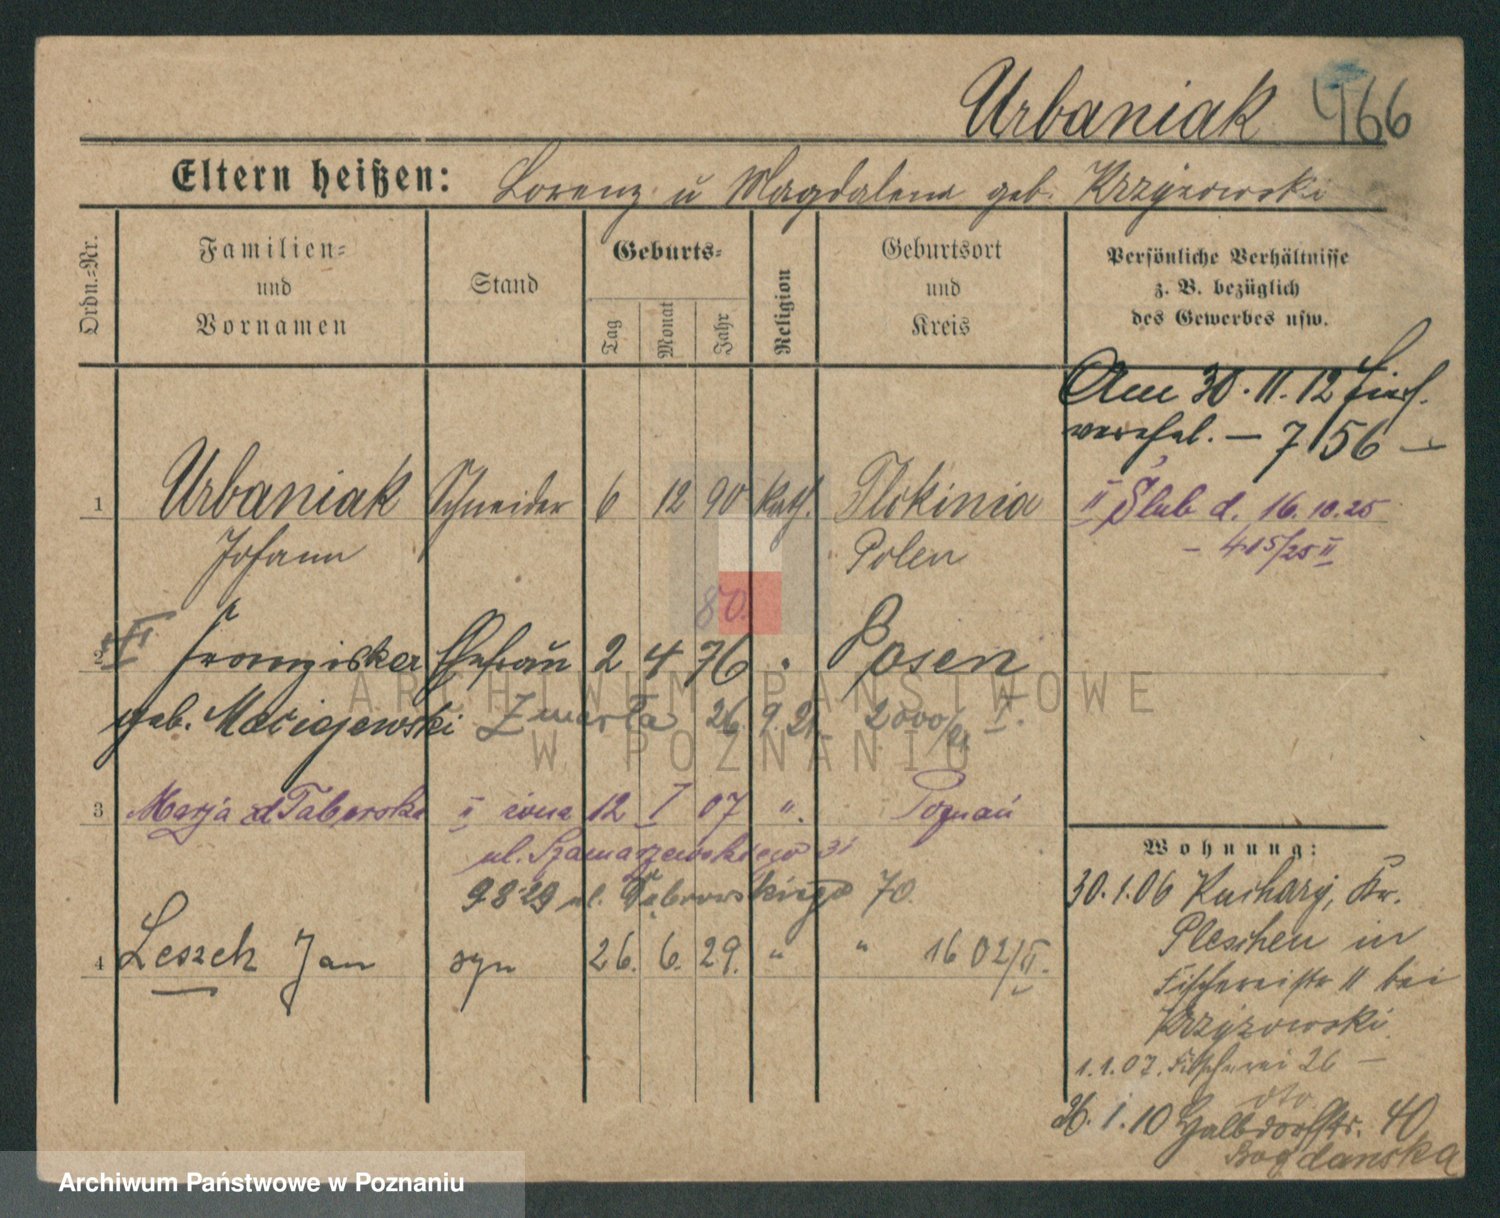 Urbaniak 466
Eltern heißen: Lorenz u Magdalena geb. Krzyzowski
Ordn.=Nr.
Familien=
und
Vornamen
Stand
Geburts=
Tag
Monat
Jahr
Religion
Geburtsort
und
Kreis
Persönliche Verhältnisse
z. B. bezüglich
des Gewerbes usw.
Am 30.11.12 hier
verehel. – 7156 –
II Ślub d. 16.10.25
– 415/25 II
1 Urbaniak Schneider 6 12 90 kath. Plokinia
Johann Polen
80.
2 II Franziska Ehefrau 2 4 76 Posen
geb. Maciejewski Zmarła 26. 9. 21. 2000/21 I.
3 Marja z Taberski II żona 12 I 07 ". Poznań
ul. Szamarzewskiego 31
9829 ul. Dąbrowskiego 70.
4 Leszek Jan syn 26. 6. 29. " " 1602/II.
Wohnung:
30.1.06 Kuchary, Kr.
Pleschen in
Fischereistr 11 bei
Krzyzowski.
1.1.07. Fischerei 26 –
dto
1.10 Halbdorfstr. 40
Bogdanska
ARCHIWUM PAŃSTWOWE
W POZNANIU
Archiwum Państwowe w Poznaniu